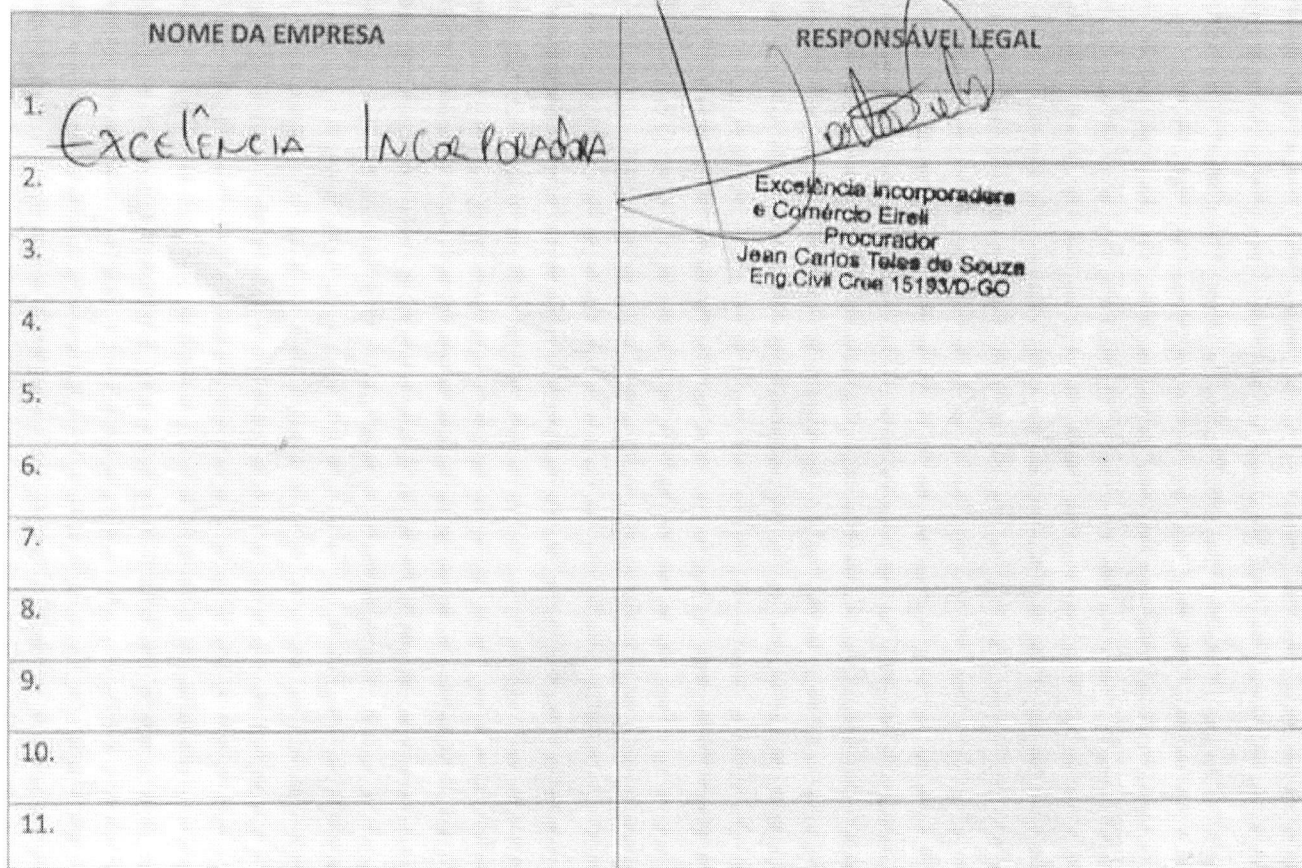 NOME DA EMPRESA
RESPONSÁVEL LEGAL
1. EXCELÊNCIA INCORPORADORA
2.
Excelência incorporadora
e Comércio Eireli
Procurador
3.
Jean Carlos Teles de Souza
Eng.Civil Crea 15193/D-GO
4.
5.
6.
7.
8.
9.
10.
11.